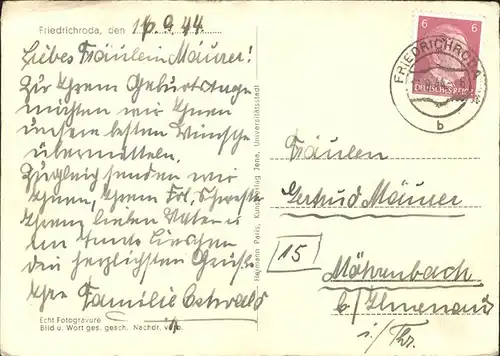 Friedrichroda, den 16.9.44
Liebes Fräulein Mäurer!
Zu Ihrem Geburtstage
möchten wir Ihnen
unsere besten Wünsche
übermitteln.
Zugleich senden wir
Ihnen, Ihrem Frl. Schwester
Ihrem lieben Vater u.
die herzlichsten Grüße
Ihre Familie
Echt Fotogravure
Bild u. Wort ges. gesch. Nachdr. verb.
Kunstverlag Jena, Universitätsstadt
6 6
DEUTSCHES REICH
FRIEDRICHRODA
b
Fräulein
Gertrud Mäurer
15
Möhrenbach
b/ Ilmenau
i/Thr.